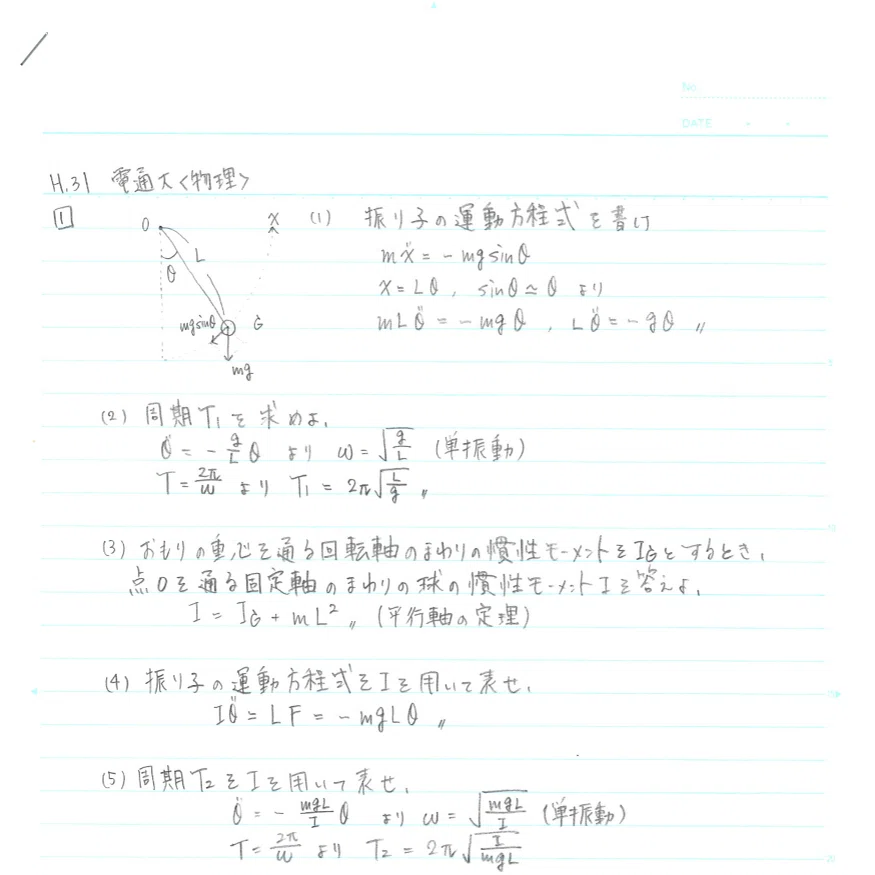 No.
DATE
H.31 電通大<物理>
1
O
L
θ
x
mgsinθ
G
mg
(1) 振り子の運動方程式を書け
mẍ = -mgsinθ
x = Lθ , sinθ ≃ θ より
mLθ̈ = -mgθ , Lθ̈ = -gθ 〃
(2) 周期T₁を求めよ.
θ̈ = -g/L θ より ω = √(g/L) (単振動)
T = 2π/ω より T₁ = 2π√(L/g) 〃
(3) おもりの重心を通る回転軸のまわりの慣性モーメントをIGとするとき,
点Oを通る固定軸のまわりの球の慣性モーメントIを答えよ.
I = IG + mL² 〃 (平行軸の定理)
(4) 振り子の運動方程式をIを用いて表せ.
Iθ̈ = LF = -mgLθ 〃
(5) 周期T₂をIを用いて表せ.
θ̈ = -mgL/I θ より ω = √(mgL/I) (単振動)
T = 2π/ω より T₂ = 2π√(I/mgL)